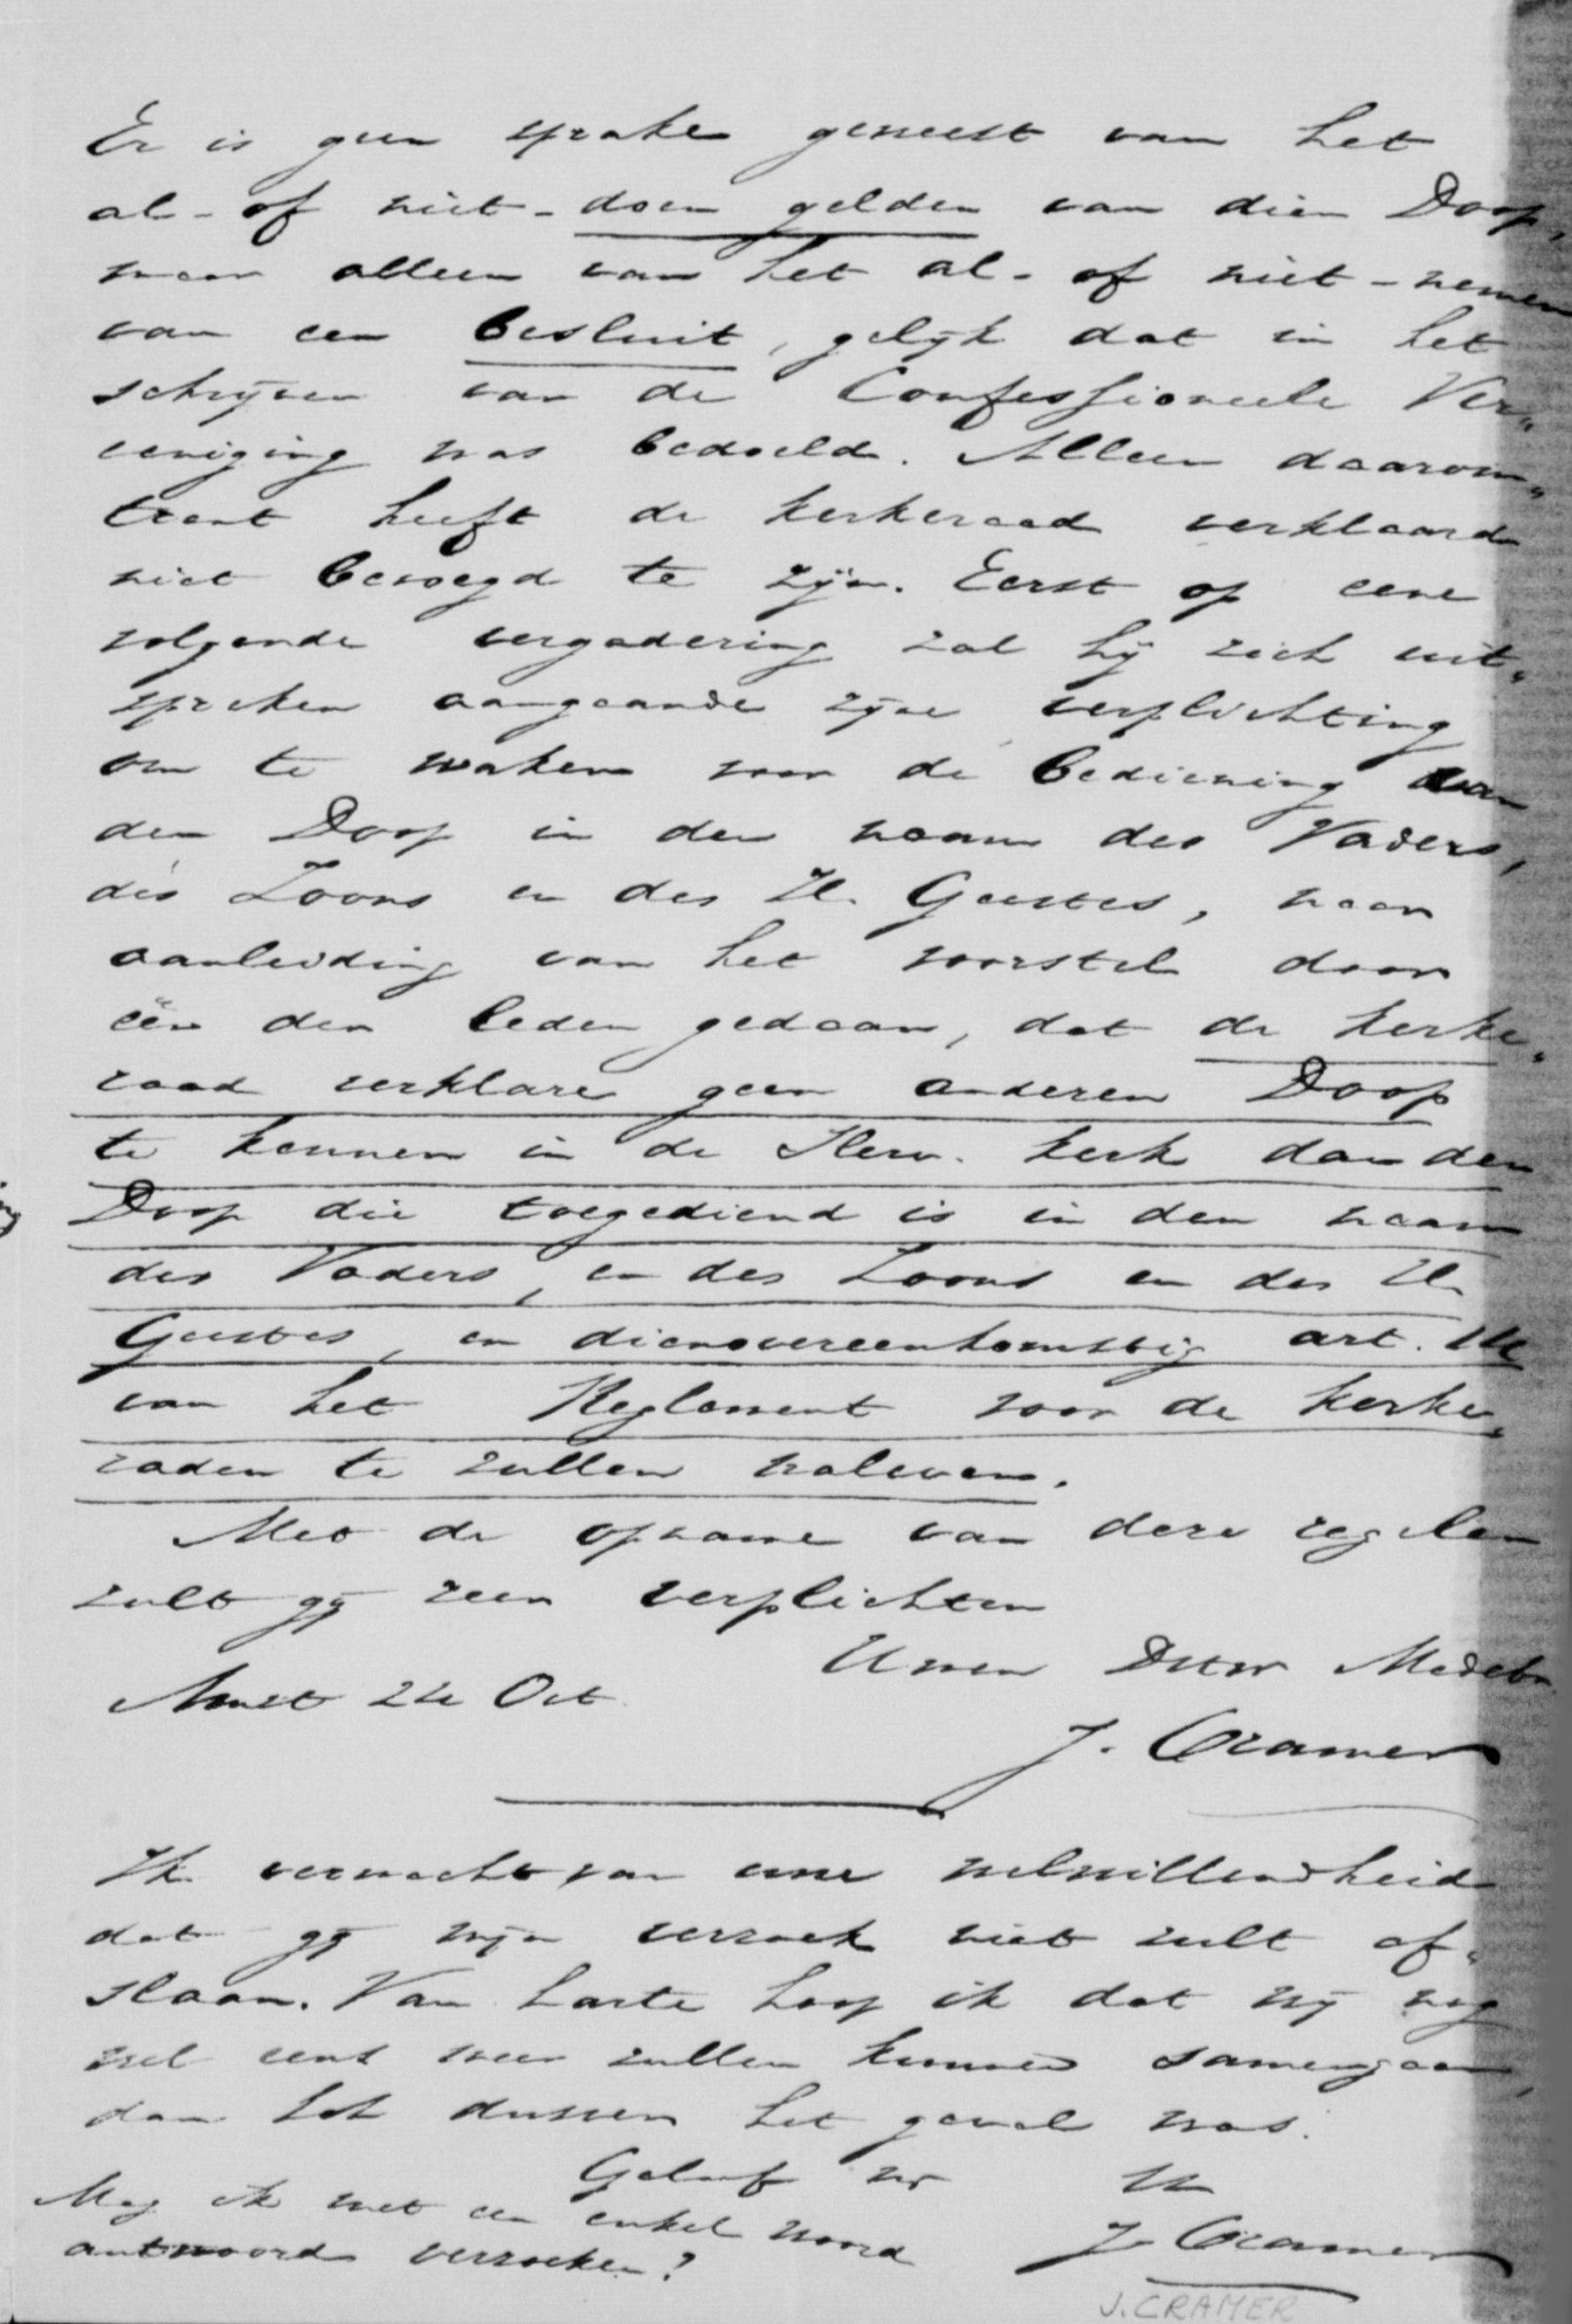 Er is geen sprake geweest van het
al- of niet-doen gelden van dien Doop,
maar alleen van het al- of niet-nemen
van een besluit, gelijk dat in het
schrijven van de Confessioneele Ver„
eeniging was bedoeld. Alleen daarom„
trent heeft de kerkeraad verklaard
niet bevoegd te zijn. Eerst op eene
volgende vergadering zal hij zich uit„
spreken aangaande zijne verplichting
om te waken voor de bediening van
den Doop in den naam des Vaders,
des Zoons en des H. Geestes, naar
aanleiding van het voorstel door
één der leden gedaan, dat de kerke„
raad verklare geen anderen Doop
te kennen in de Herv. kerk dan den
Doop die toegediend is in den naam
des Vaders, en des Zoons en des H.
Geestes, en dienovereenkomstig art.
van het Reglement voor de kerke„
raden te zullen naleven.
Met de opname van deze regelen
zult gij zeer verplichten
Uwen Dw Medebr
Amst 24 Oct
J. Cramer
Ik verwacht van uwe welwillendheid
dat gij mijn verzoek niet zult af„
slaan. Van harte hoop ik dat wij nog
wel eens meer zullen kunnen samengaan,
dan tot dusver het geval was.
Geloof mij
Mag ik met een enkel woord
antwoord verzoeken?
J Cramer
J. CRAMER